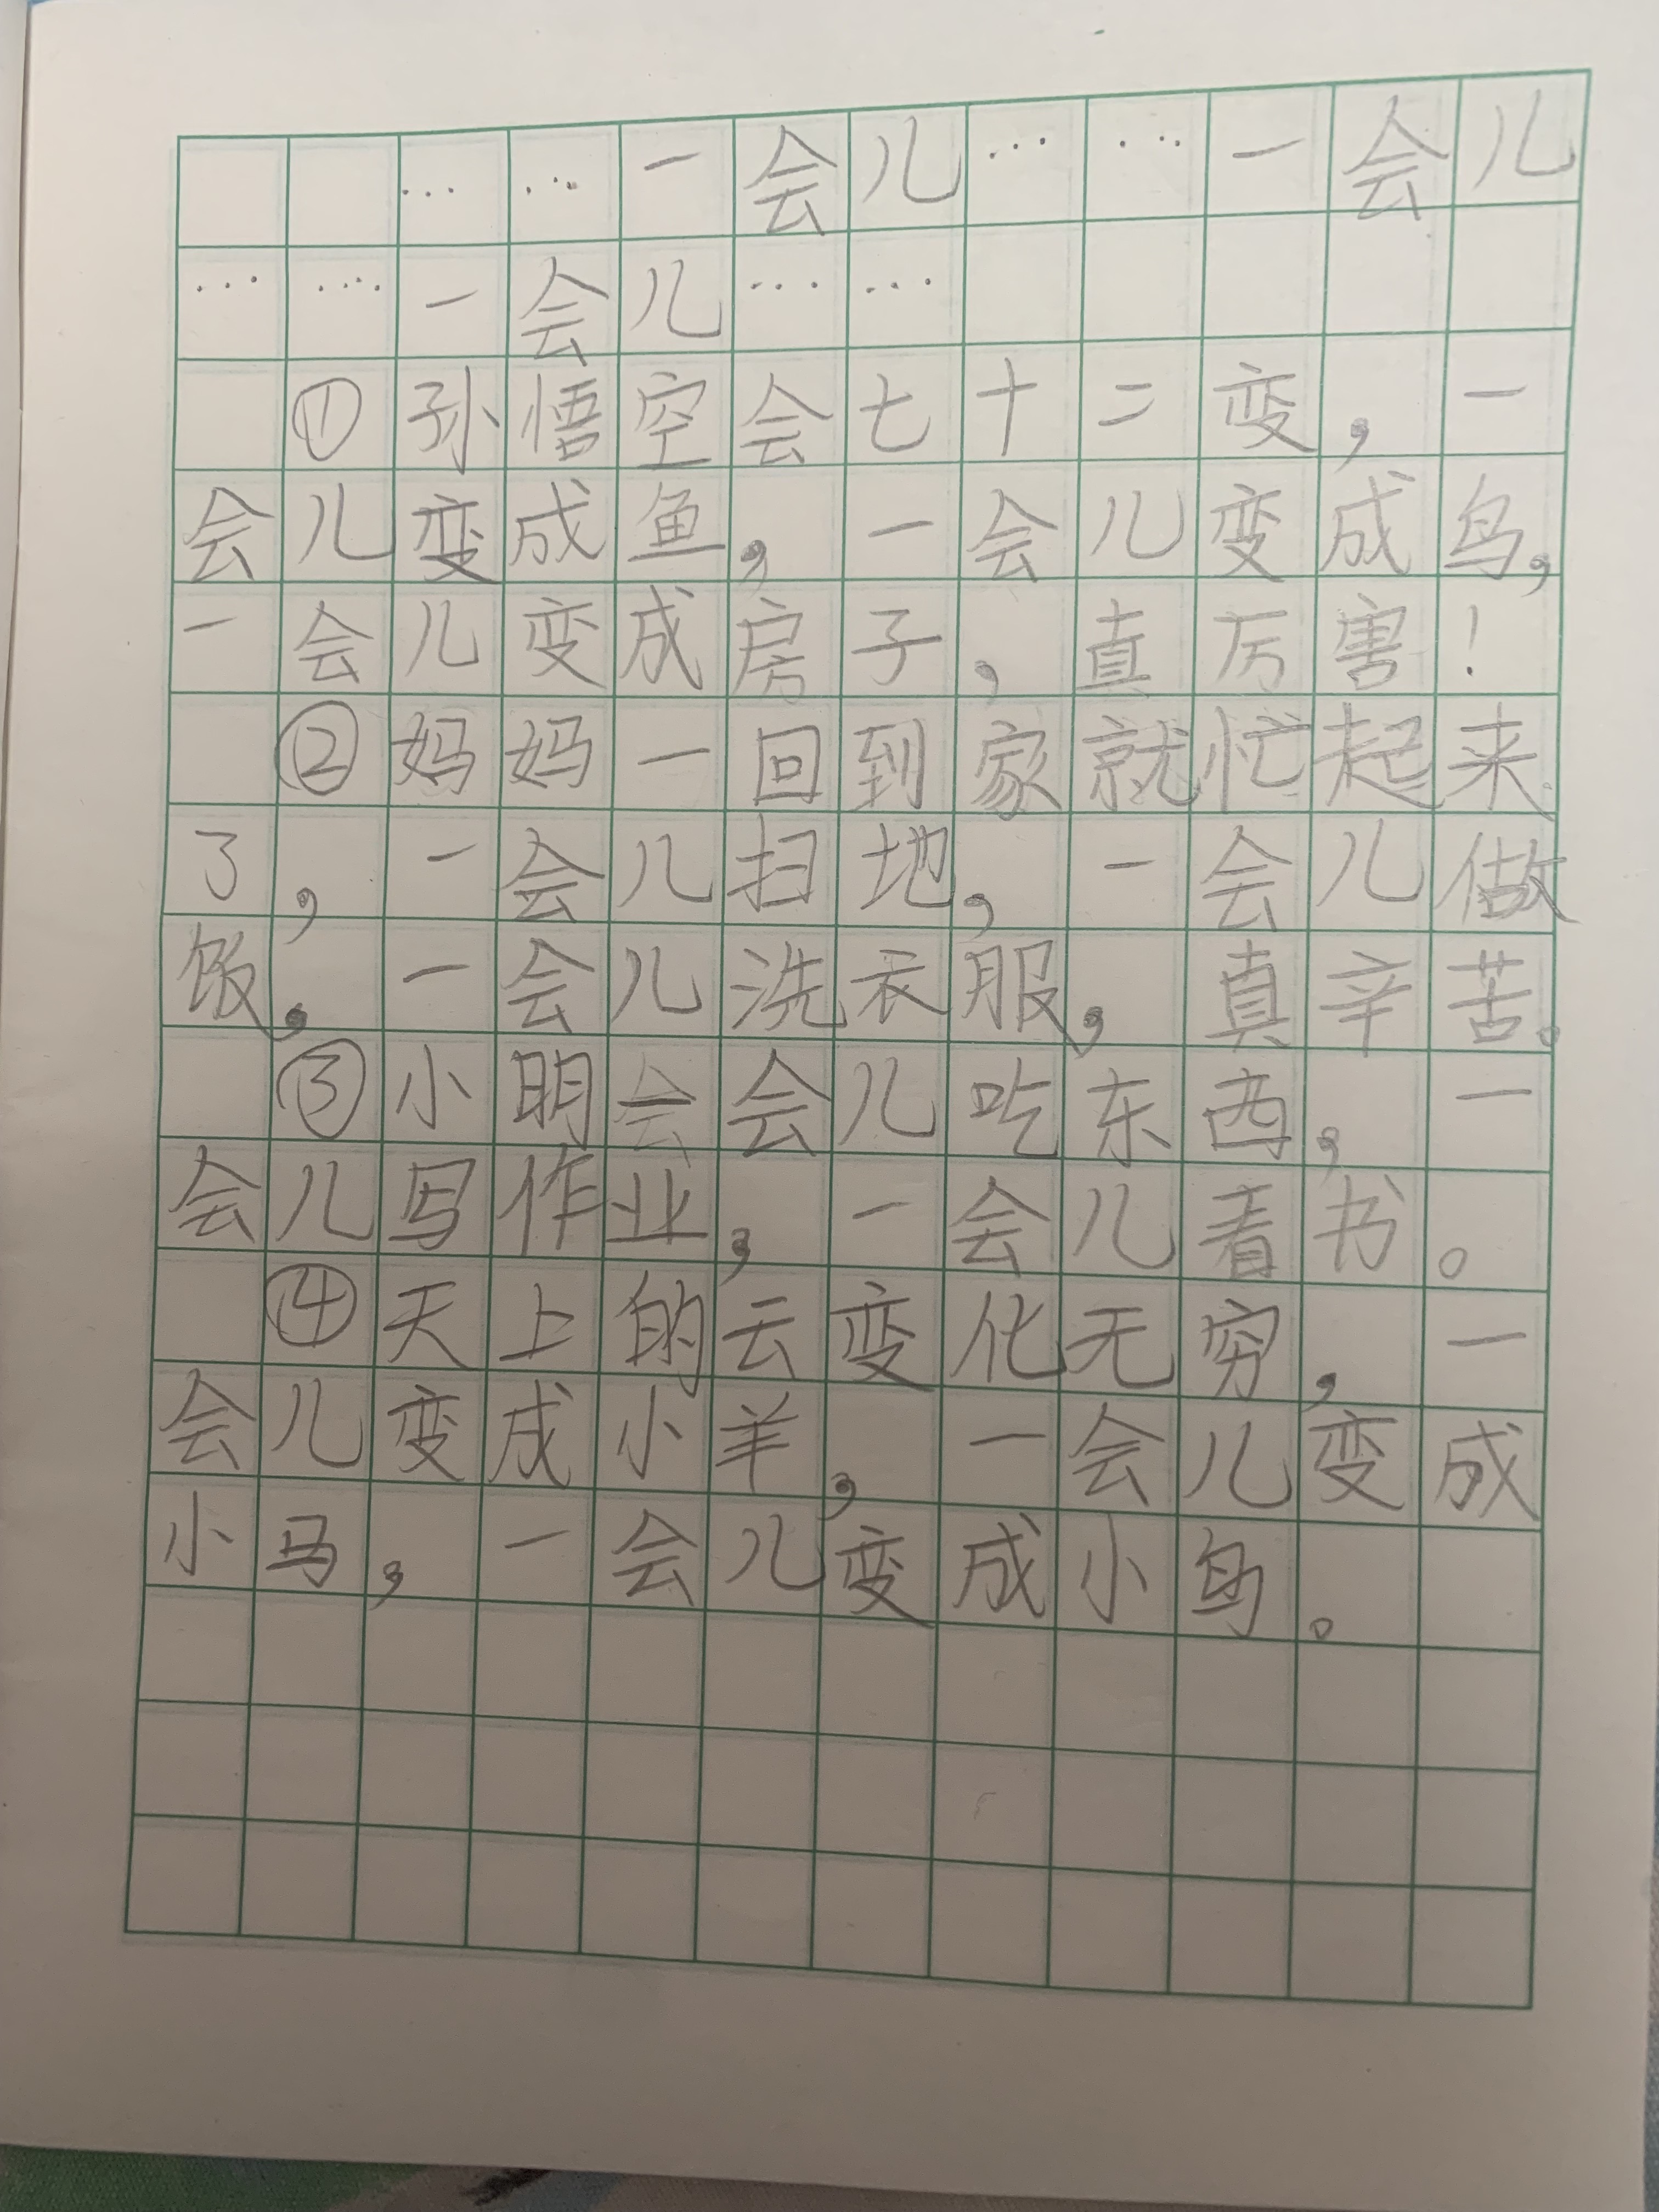 ……一会儿……一会儿
……一会儿……
①孙悟空会七十二变,一
会儿变成鱼,一会儿变成鸟,
一会儿变成房子,真厉害!
②妈妈一回到家就忙起来
了,一会儿扫地,一会儿做
饭,一会儿洗衣服,真辛苦。
③小明会会儿吃东西,一
会儿写作业,一会儿看书。
④天上的云变化无穷,一
会儿变成小羊,一会儿变成
小马,一会儿变成小鸟。